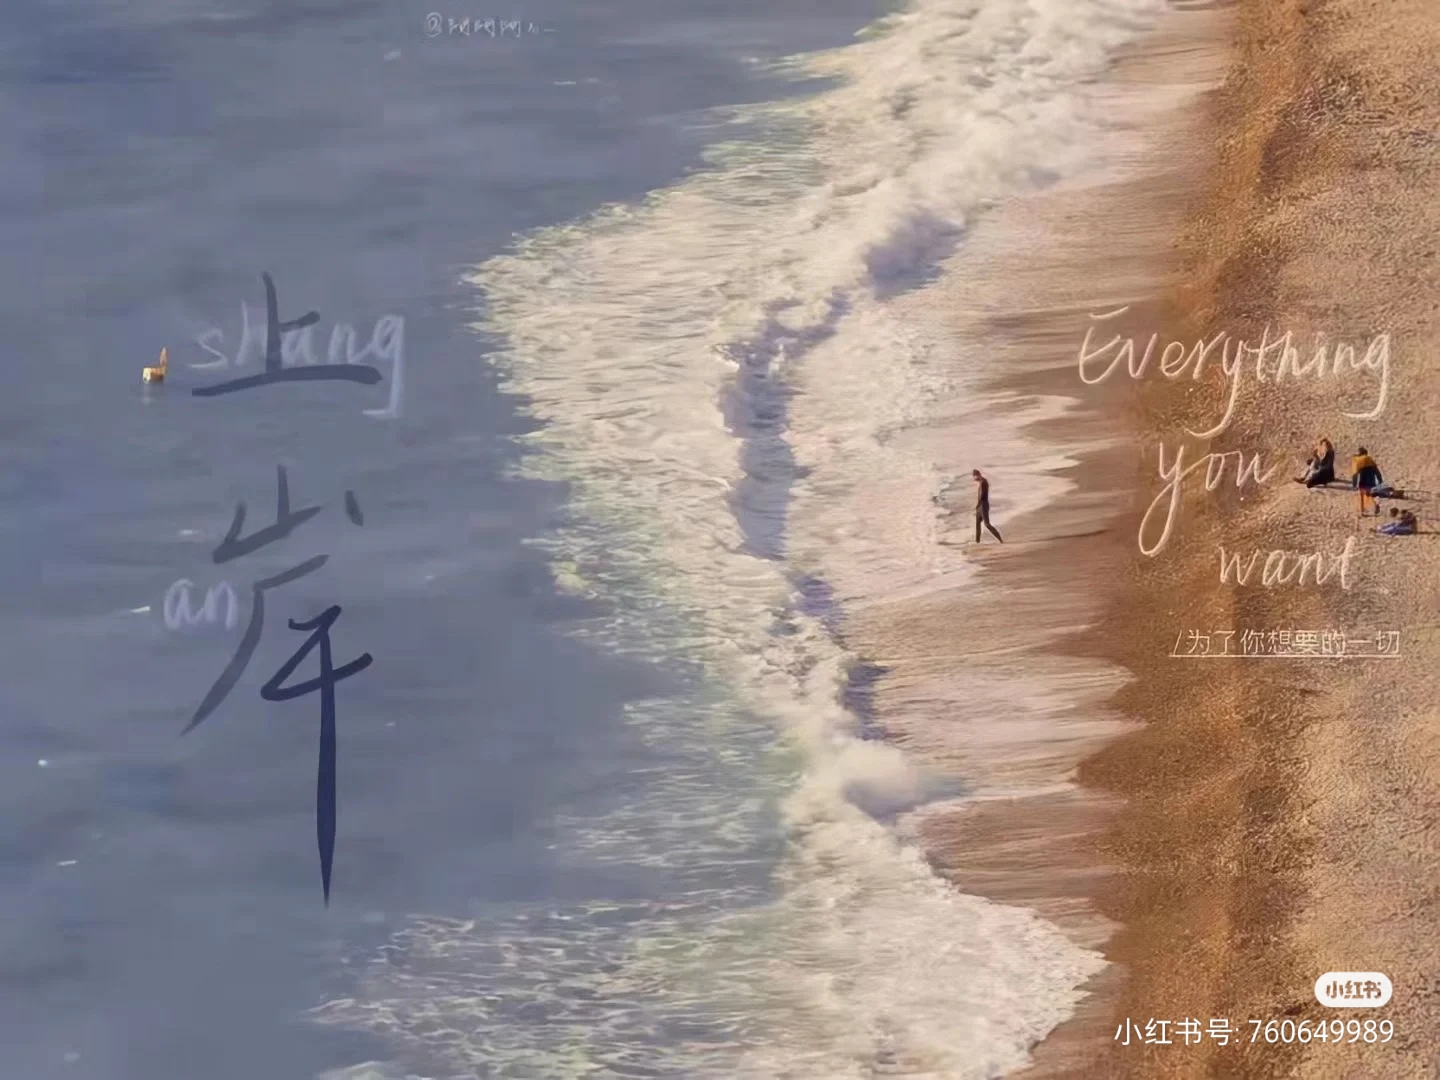 shang
上
岸
an
Everything
you
want
/为了你想要的一切
小红书
小红书号: 760649989